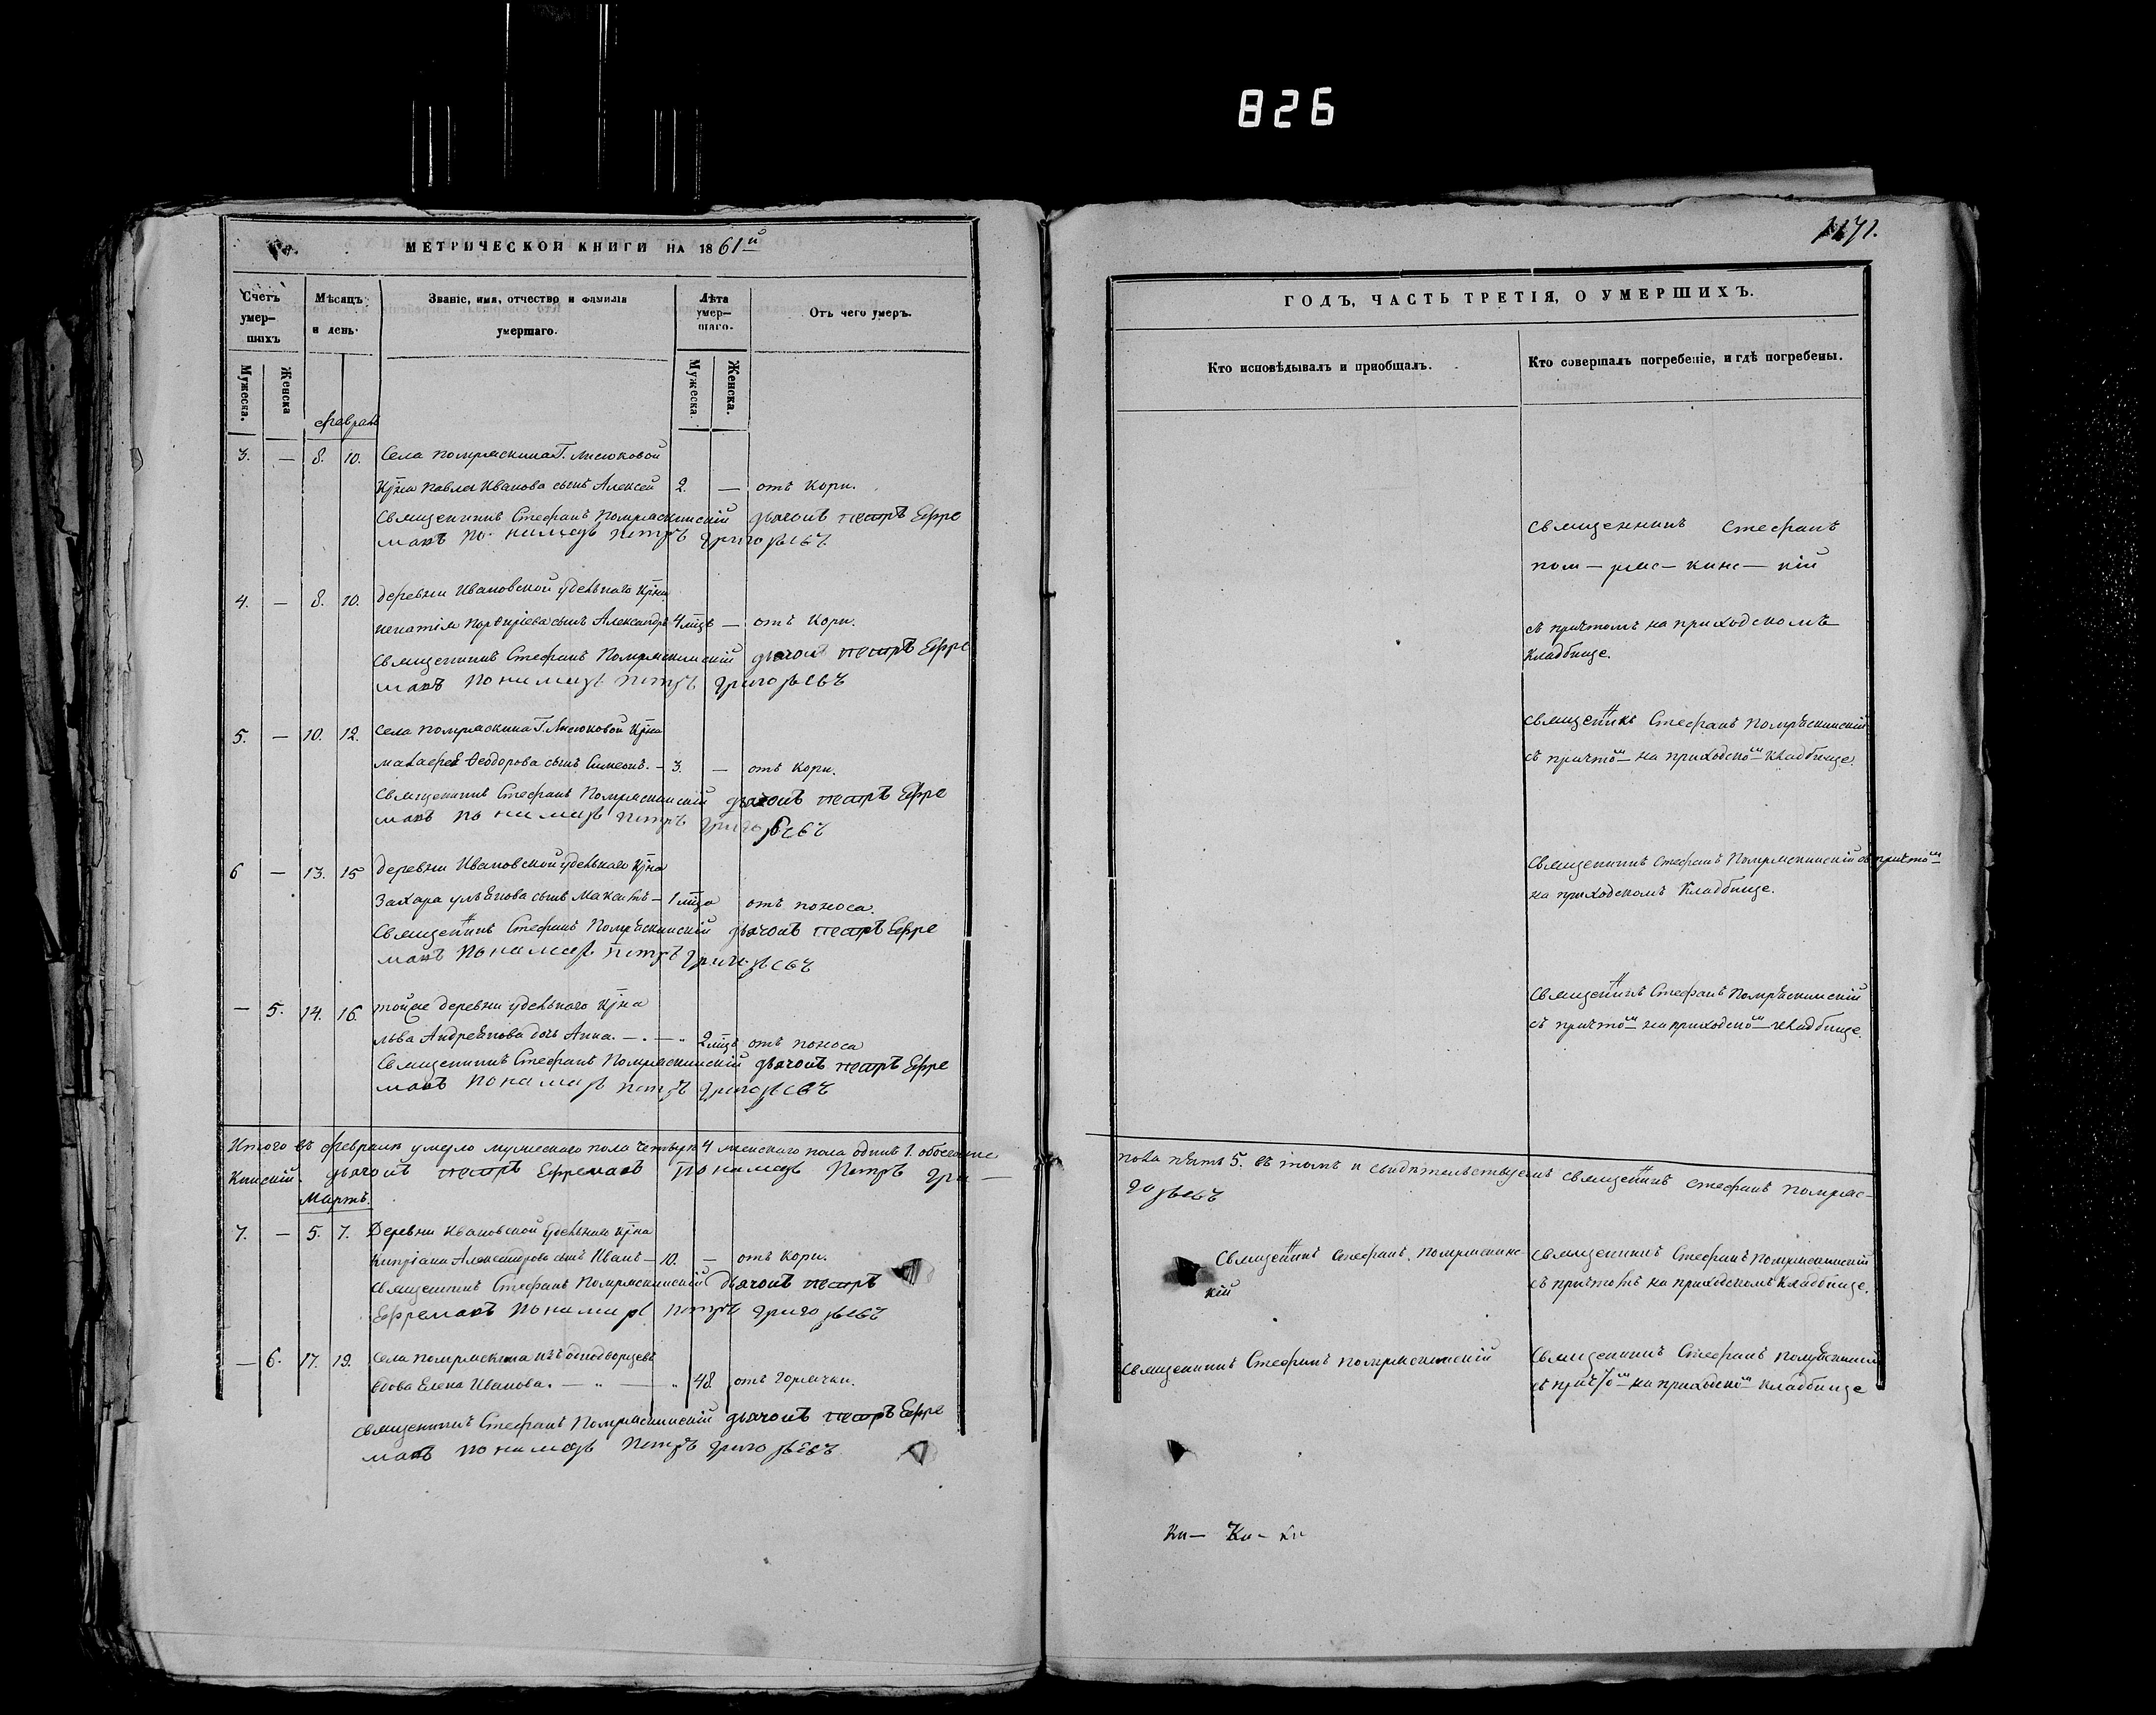 826
МЕТРИЧЕСКОЙ КНИГИ НА 1861й
Счетъ умер— шихъ
Мѣсяцъ и день.
Званіе, имя, отчество и фамилія умершаго.
Лѣта умер— шаго.
Отъ чего умеръ.
Мужеска.
Женска
Мужеска.
Женска.
Февраль
3. — 8. 10. Села Помряскина Г.
Кр̃на Павла Иванова сынъ Алексей 2. — отъ Кори.
Священникъ Стефанъ Помряскинскій дьячокъ Петръ Ефре
мовъ Пономарь Петръ Григорьевъ
4. — 8. 10. Деревни Ивановской удельнаго Кр̃на
Игнатія Порфиріева сынъ Александръ 4 мцъ — отъ Кори.
Священникъ Стефанъ Помряскинскій дьячокъ Петръ Ефре
мовъ Пономарь Петръ Григорьевъ
5. — 10. 12. Села Помряскина Г. Кр̃на
Феодорова сынъ Симеонъ. — 3. — отъ Кори.
Священникъ Стефанъ Помряскинскій дьячокъ Петръ Ефре
мовъ Пономарь Петръ Григорьевъ
6 — 13. 15 Деревни Ивановской удельнаго Кр̃на
Захара сынъ Максимъ — 1 мца отъ поноса.
Священникъ Стефанъ Помряскинскій дьячокъ Петръ Ефре
мовъ Пономарь Петръ Григорьевъ
— 5. 14. 16. тойже Деревни удельнаго Кр̃на
Льва Андреянова дочь Анна. — . — „ 2 мцъ отъ поноса
Священникъ Стефанъ Помряскинскій дьячокъ Петръ Ефре
мовъ Пономарь Петръ Григорьевъ
Итого въ Феврале умерло мужескаго пола четыре 4 женскаго пола одинъ 1. обоего
Кинскій. дьячокъ Петръ Ефремовъ Пономарь Петръ Гри —
Мартъ.
7. — 5. 7. Деревни Ивановской удельнаго Кр̃на
Кипріана Александрова сынъ Иванъ — 10. — отъ Кори.
Священникъ Стефанъ Помряскинскій Дьячокъ Петръ
Ефремовъ Пономарь Петръ Григорьевъ
— 6. 17. 19. Села Помряскина изъ однодворцевъ
вдова Елена Иванова. — „ — „ 48. отъ горячки.
Священникъ Стефанъ Помряскинскій дьячокъ Петръ Ефре
мовъ Пономарь Петръ Григорьевъ
1171.
ГОДЪ, ЧАСТЬ ТРЕТІЯ, О УМЕРШИХЪ.
Кто исповѣдывалъ и пріобщалъ.
Кто совершалъ погребеніе, и гдѣ погребены.
Священникъ Стефанъ
пом — ряс — кинс — кій
съ причтомъ на приходскомъ
Кладбище.
Священникъ Стефанъ Помряскинскій
съ причтом на приходском Кладбище.
Священникъ Стефанъ Помряскинскій съ причтом
на приходскомъ Кладбище.
Священникъ Стефанъ Помряскинскій
съ причтом на приходском Кладбище.
пола пять 5. въ томъ и свидетельствуемъ Священникъ Стефанъ Помряс—
горьевъ
Священникъ Стефанъ Помряскинс—
кій
Священникъ Стефанъ Помряскинскій
съ причтомъ на приходскомъ Кладбище.
Священникъ Стефанъ Помряскинскій
Священникъ Стефанъ Помряскинскій
съ причтом на приходском Кладбище